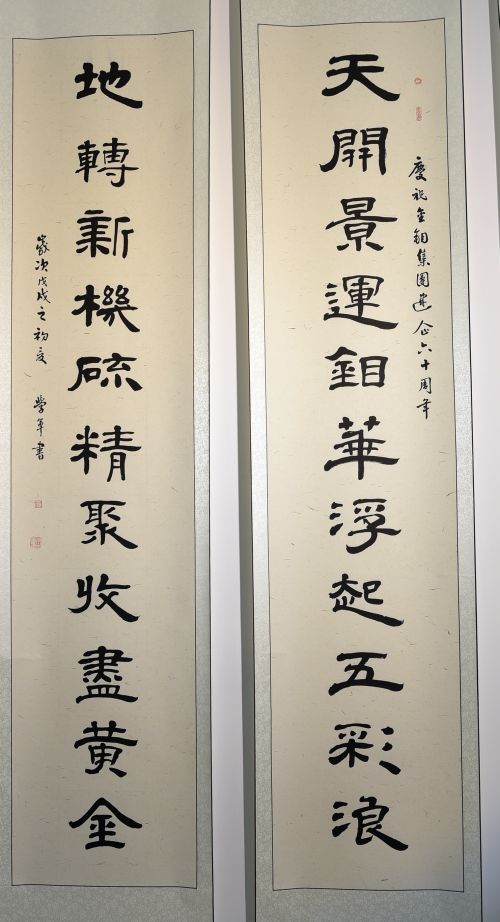 慶祝金鉬集團建企六十周年
天開景運鉬華浮起五彩浪
地轉新機硫精聚收盡黃金
歲次戊戌之初夏 學軍書